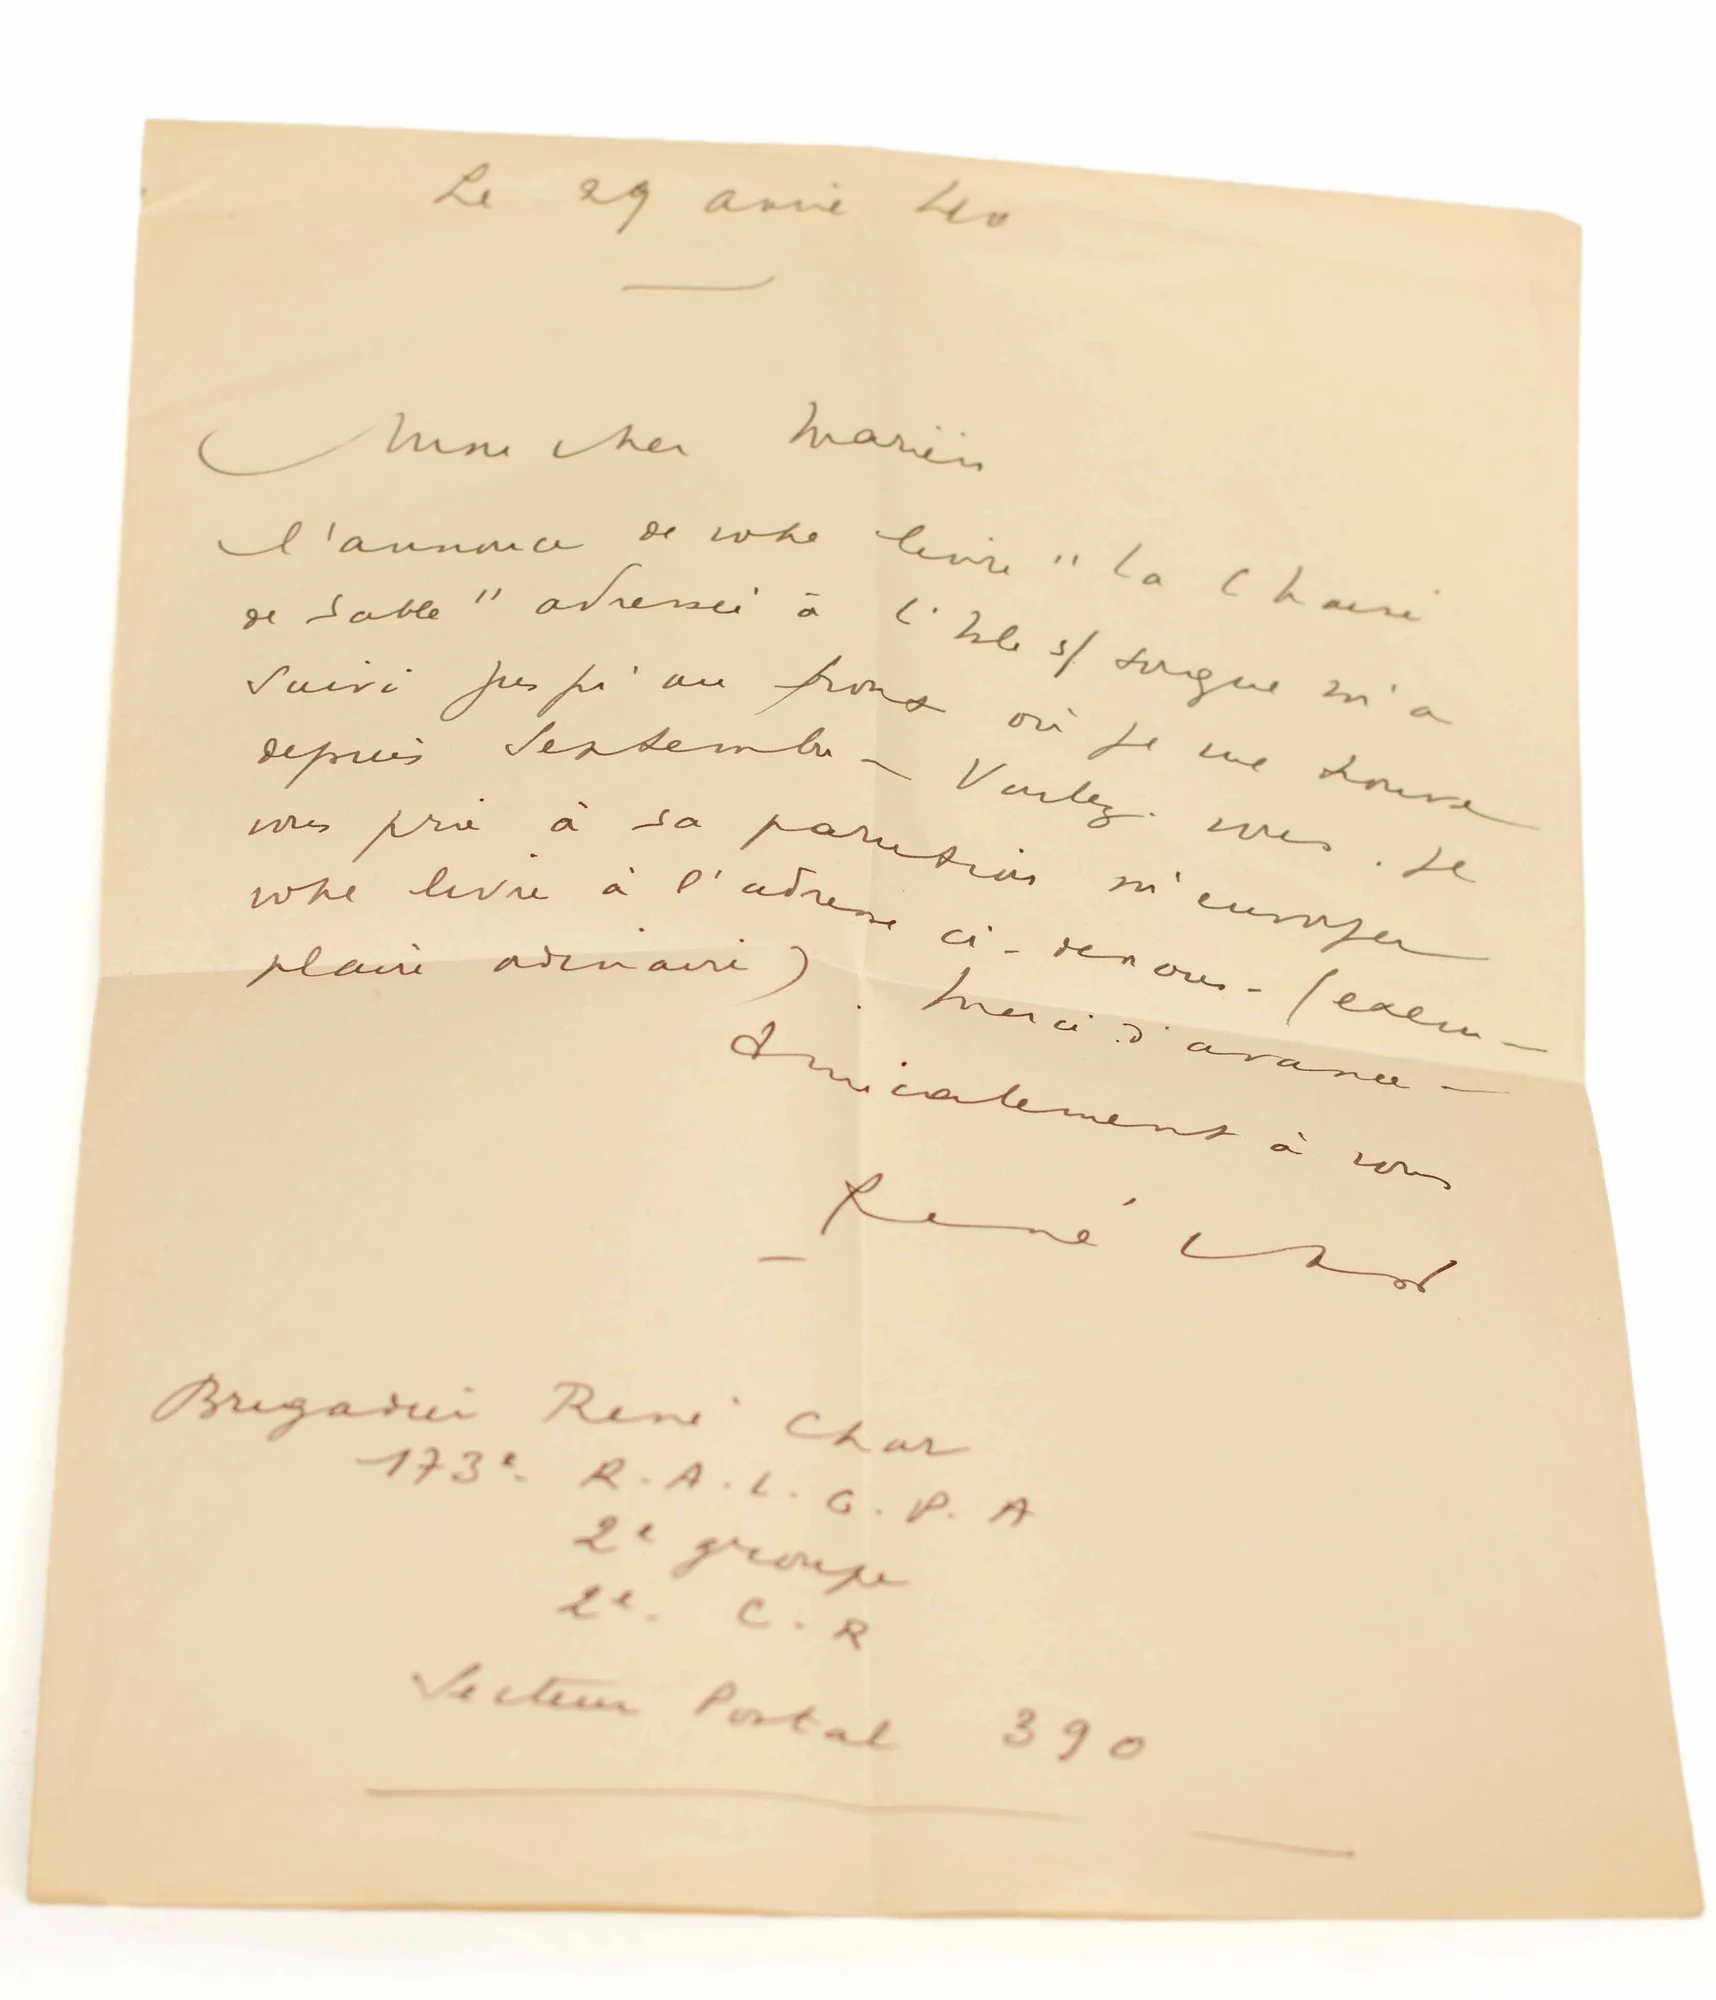 Le 29 avril 40
Mon cher Mariën
l'annonce de votre livre "La Chaise
de sable" adressée à l'Isle s/ Sorgue m'a
suivi jusqu'au front où je me trouve
depuis Septembre – Voulez-vous. je
vous prie à sa parution m'envoyer
votre livre à l'adresse ci-dessous – (exem-
plaire ordinaire). Merci d'avance –
Amicalement à vous
René Char
Brigadier René Char
173e. R.A.L.G.P.A
2e groupe
2e. C.R
Secteur Postal 390